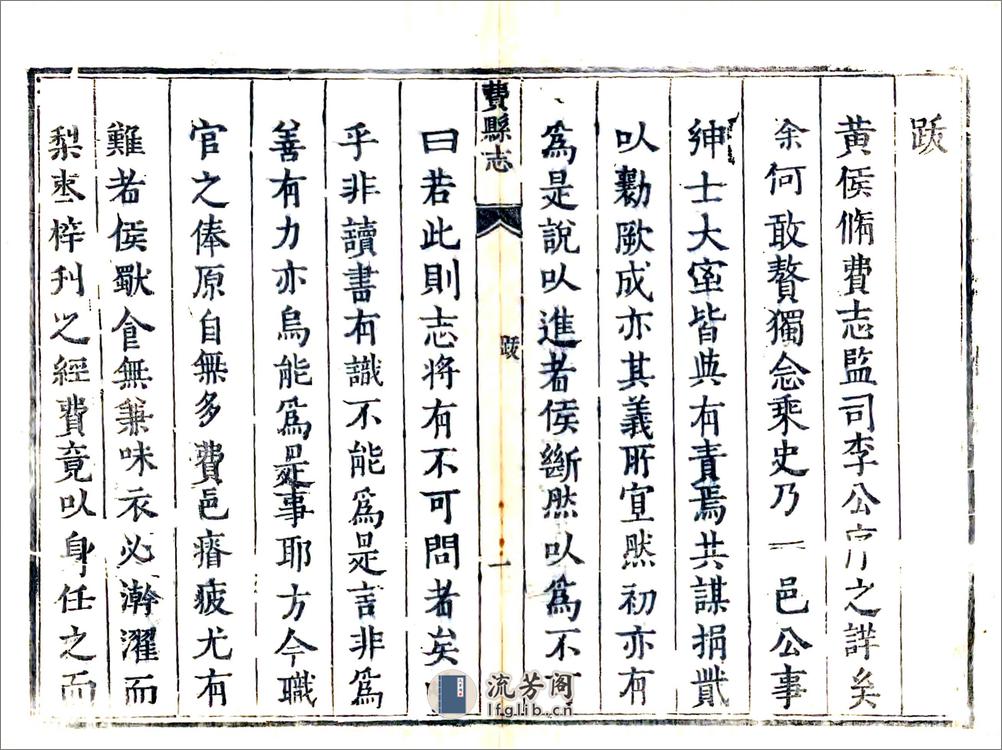 跋
黃侯脩費志監司李公序之詳矣
余何敢贅獨念乘史乃一邑公事
紳士大室皆與有責焉共謀捐貲
以勷厥成亦其義所宜然初亦有
為是說以進者侯斷然以為不可
費縣志
跋
一
曰若此則志將有不可問者矣
乎非讀書有識不能為是言非為
善有力亦烏能為是事耶方今職
官之俸原自無多費邑瘠疲尤有
難者侯歠食無兼味衣必澣濯而
梨棗梓刊之經費竟以身任之而
流芳阁
lfglib.cn